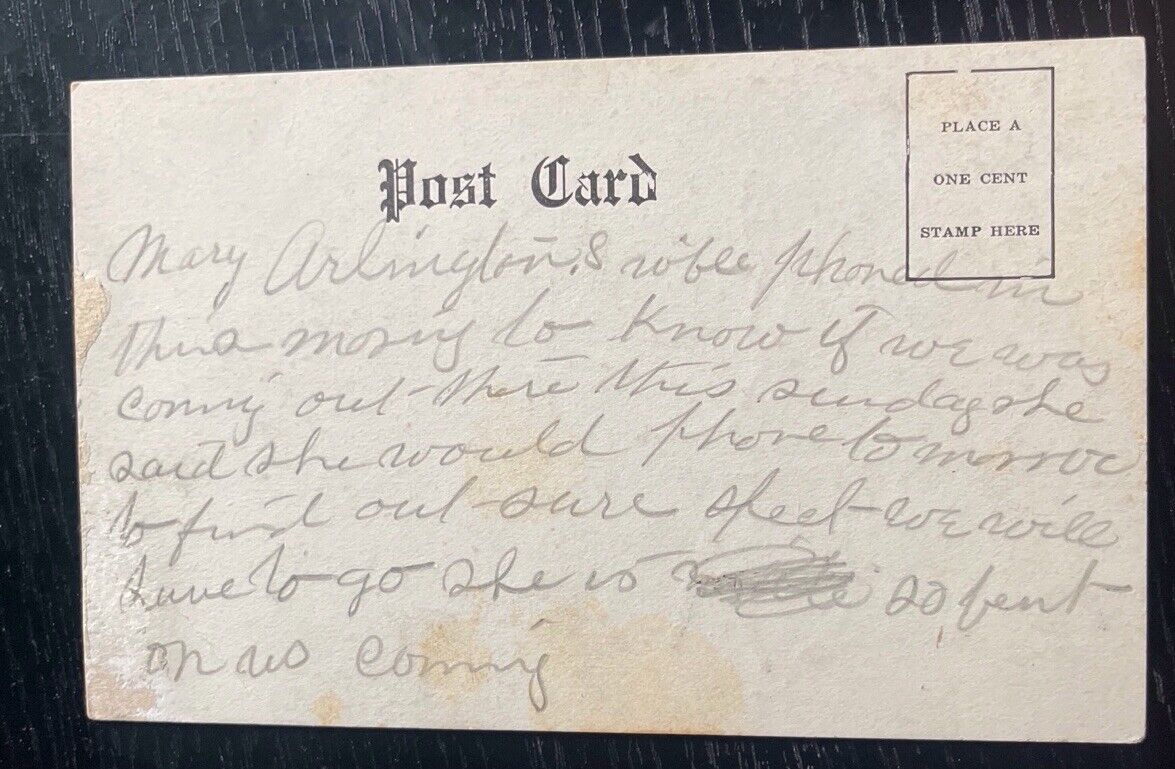 PLACE A
ONE CENT
STAMP HERE
Post Card
Mary Arlington,s wife phoned in
this mornig to know if we was
coming out there this sunday she
said she would phone tomorroe
to find out sure spect we will
have to go she is so bent
on us coming